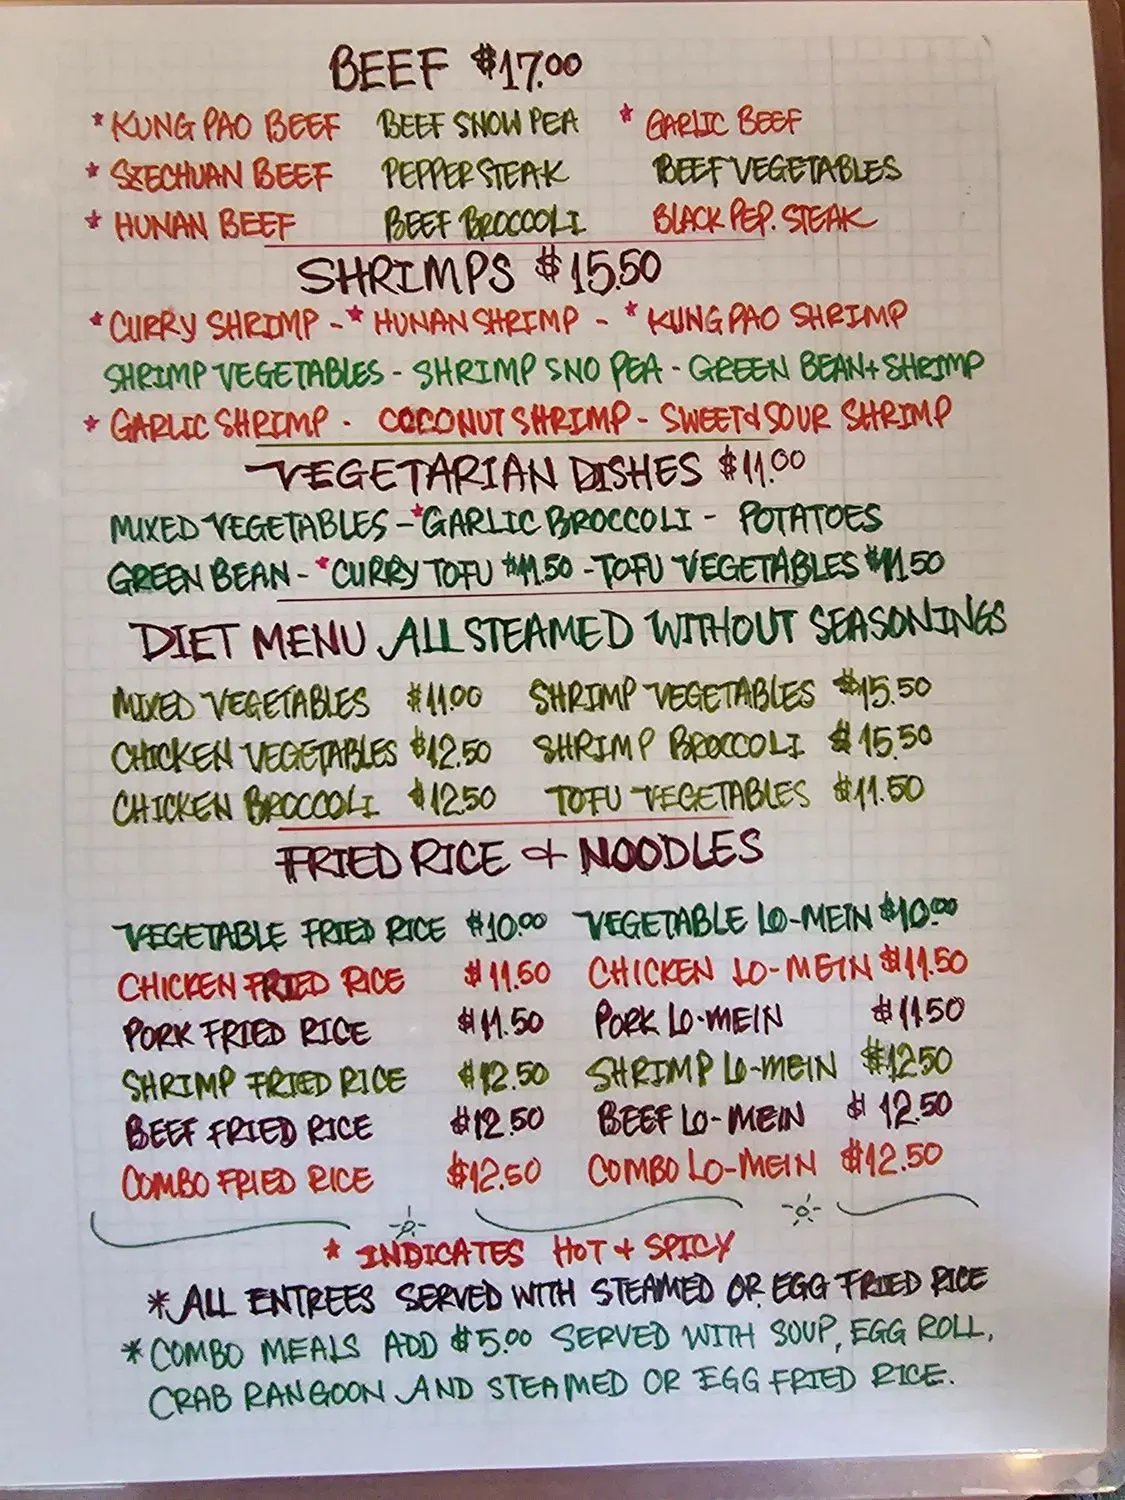 BEEF $17.00
* KUNG PAO BEEF BEEF SNOW PEA * GARLIC BEEF
* SZECHUAN BEEF PEPPER STEAK BEEF VEGETABLES
* HUNAN BEEF BEEF BROCCOLI BLACK PEP. STEAK
SHRIMPS $15.50
* CURRY SHRIMP - * HUNAN SHRIMP - * KUNG PAO SHRIMP
SHRIMP VEGETABLES - SHRIMP SNO PEA - GREEN BEAN + SHRIMP
* GARLIC SHRIMP - COCONUT SHRIMP - SWEET & SOUR SHRIMP
VEGETARIAN DISHES $11.00
MIXED VEGETABLES - * GARLIC BROCCOLI - POTATOES
GREEN BEAN - * CURRY TOFU $11.50 - TOFU VEGETABLES $11.50
DIET MENU ALL STEAMED WITHOUT SEASONINGS
MIXED VEGETABLES $11.00 SHRIMP VEGETABLES $15.50
CHICKEN VEGETABLES $12.50 SHRIMP BROCCOLI $15.50
CHICKEN BROCCOLI $12.50 TOFU VEGETABLES $11.50
FRIED RICE & NOODLES
VEGETABLE FRIED RICE $10.00 VEGETABLE LO-MEIN $10.00
CHICKEN FRIED RICE $11.50 CHICKEN LO-MEIN $11.50
PORK FRIED RICE $11.50 PORK LO-MEIN $11.50
SHRIMP FRIED RICE $12.50 SHRIMP LO-MEIN $12.50
BEEF FRIED RICE $12.50 BEEF LO-MEIN $12.50
COMBO FRIED RICE $12.50 COMBO LO-MEIN $12.50
* INDICATES HOT & SPICY
* ALL ENTREES SERVED WITH STEAMED OR EGG FRIED RICE
* COMBO MEALS ADD $5.00 SERVED WITH SOUP, EGG ROLL,
CRAB RANGOON AND STEAMED OR EGG FRIED RICE.